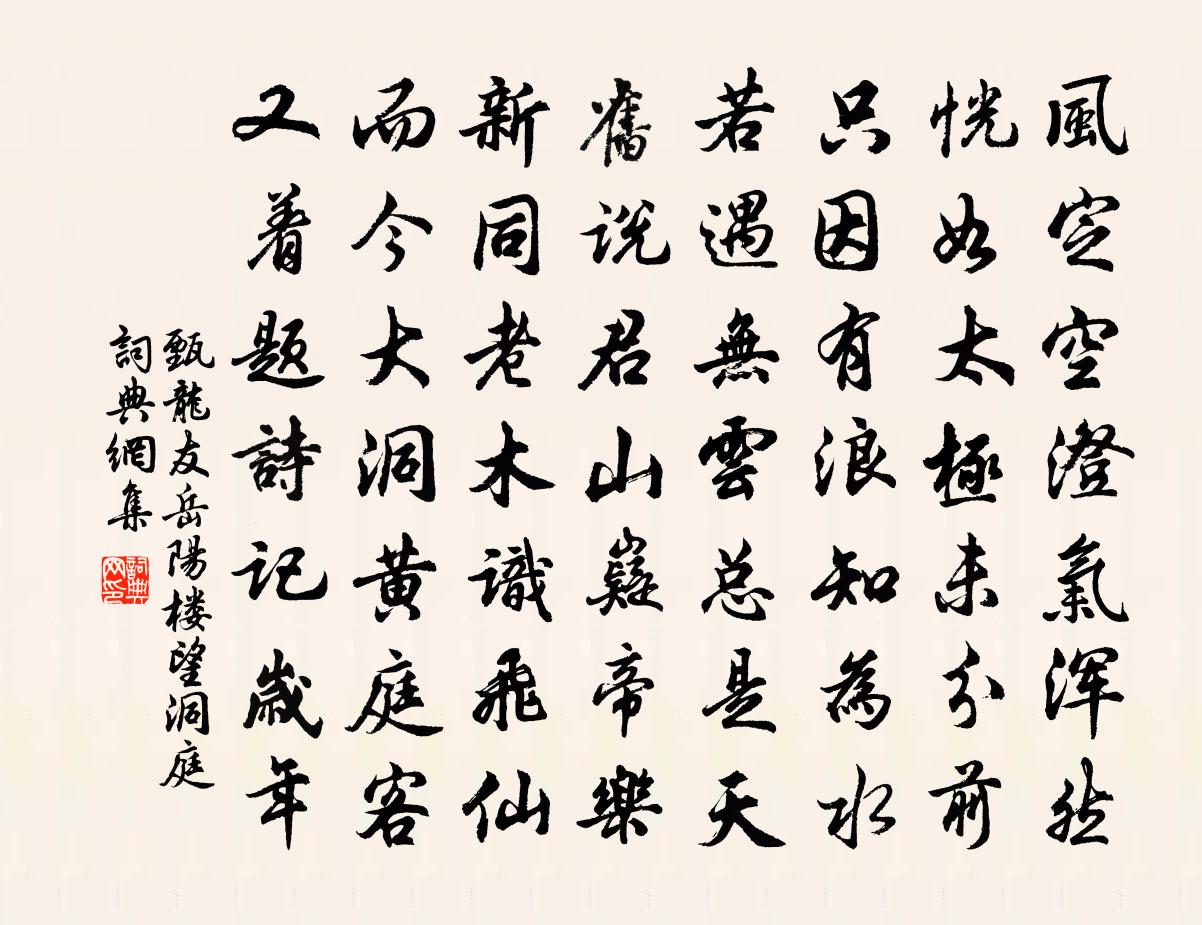 風定空澄氣渾然
恍如太極未分前
只因有浪知為水
若遇無雲總是天
舊說君山嶷帝樂
新同老木識飛仙
而今大洞黃庭客
又着題詩記歲年
甄龍友岳陽樓望洞庭
詞典網集
詞典网印